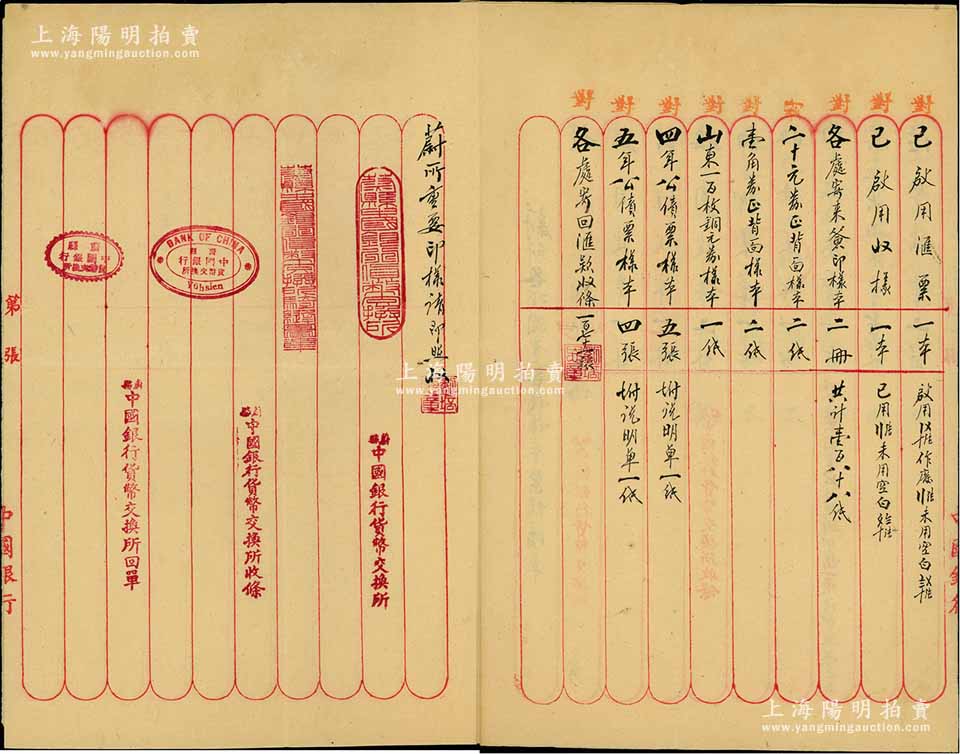 上海陽明拍賣
www.yangmingauction.com
對 對 對 宝 對 對 對 對 對
已啟用滙票 一本
已啟用收據 一本
各處寄來簽印樣本 二冊 共計壹百八十八紙
二十元券正背面樣本 二紙
壹角券正背面樣本 二紙
山東一百枚銅元券樣本 一紙
四年公債票樣本 五張 附說明單一紙
五年公債票樣本 四張 附說明單一紙
各處寄回滙款收條
中國銀行
蔚所重要印樣請即照收
蔚縣中國銀行貨幣交換所
蔚縣中國銀行貨幣交換所收條
BANK OF CHINA
蔚縣
中國銀行
貨幣交換所
Yühsien
蔚縣中國銀行貨幣交換所回單
蔚縣
中國銀行
貨幣交換所
第 張
中國銀行
上海陽明拍賣
www.yangmingauction.com
上海陽明拍賣
www.yangmingauction.com